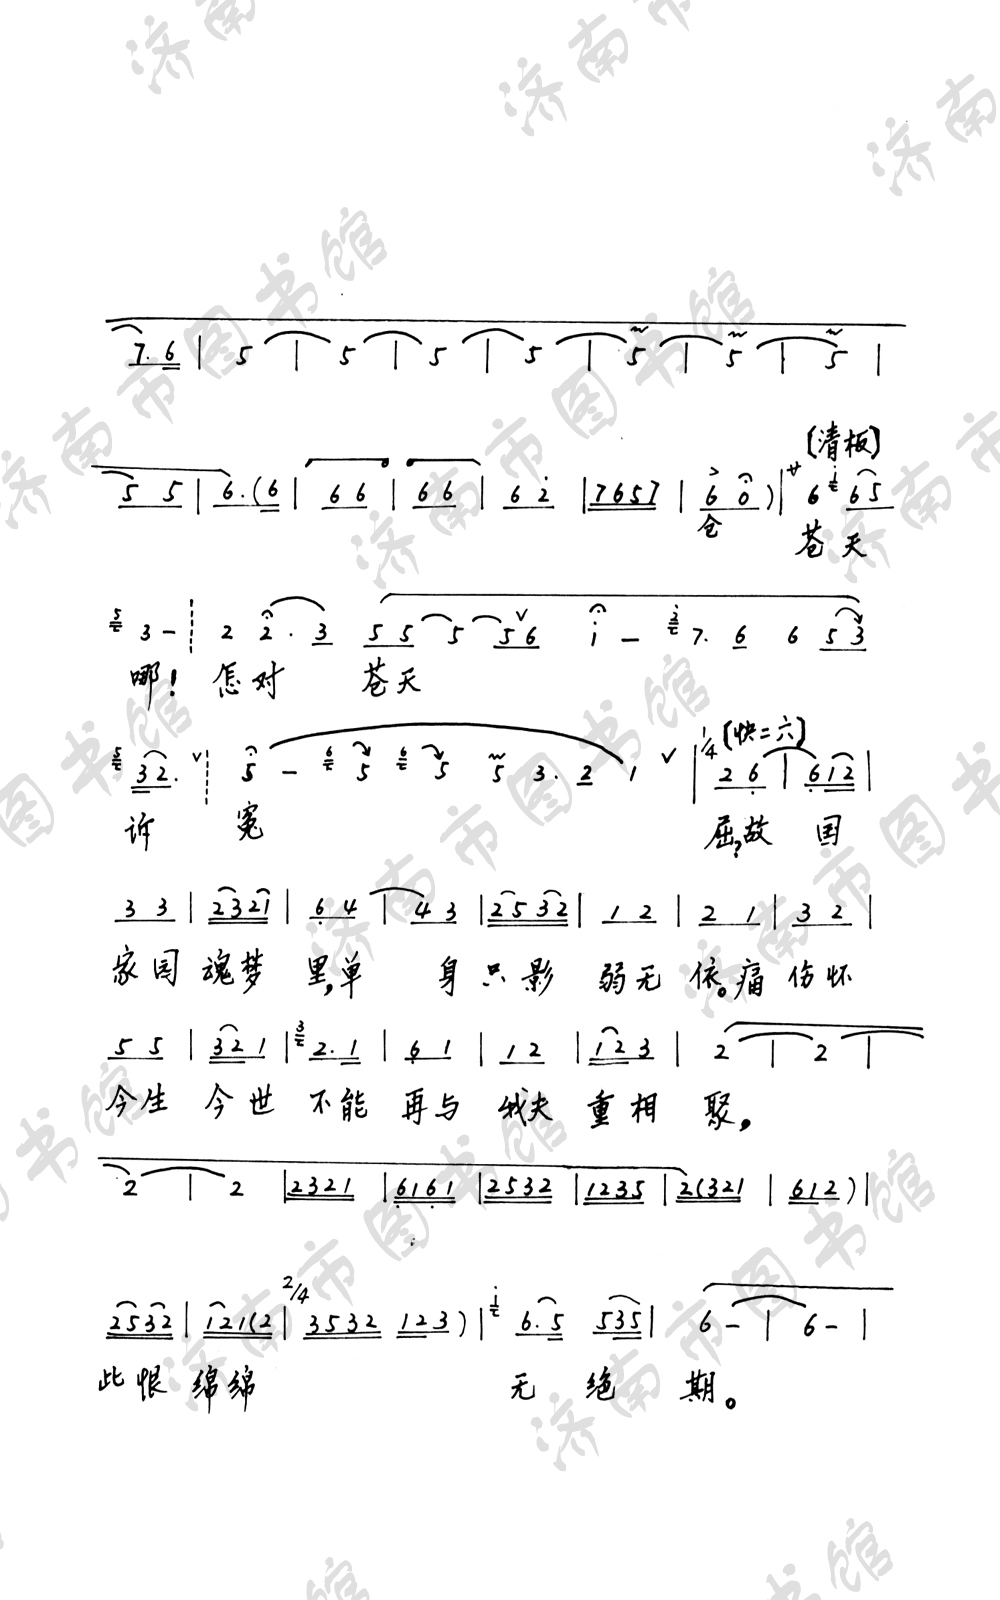 7. 6 | 5 | 5 | 5 | 5 | 5 | 5 | 5 |
[清板]
5 5 | 6. (6 | 6 6 | 6 6 | 6 2 | 7657 | 6 0 ) | サ 6 i 6 5
仓 苍天
5 3 - ┆ 2 2 . 3 5 5 5 5 6 i - 2 7. 6 6 5 3
哪! 怎对 苍天
1/4 [快二六]
5 3 2. ∨ ┆ 5 - 6 5 6 5 5 3. 2 1 ∨ | 2 6 | 6 1 2 |
诉 冤 屈?故 国
3 3 | 2321 | 6 4 | 4 3 | 2532 | 1 2 | 2 1 | 3 2 |
家园 魂梦 里,单 身 只影 弱无 依。痛 伤怀
5 5 | 3 2 1 | 3 2. 1 | 6 1 | 1 2 | 1 2 3 | 2 | 2 |
今生 今世 不能 再与 我夫 重相 聚,
2 | 2 | 2321 | 6161 | 2532 | 1235 | 2(321 | 612) |
2532 | 121(2 | 2/4 3532 123) | i 6. 5 535 | 6 - | 6 - |
此恨 绵绵 无 绝 期。
济南市图书馆